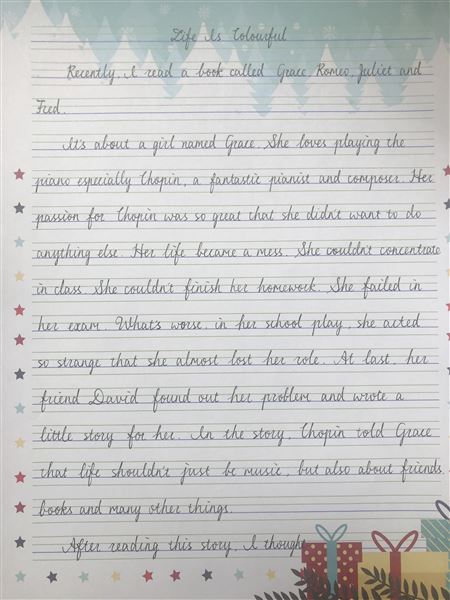 Life Is Colourful
Recently, I read a book called Grace, Romeo, Juliet and
Fred.
It's about a girl named Grace. She loves playing the
piano especially Chopin, a fantastic pianist and composer. Her
passion for Chopin was so great that she didn't want to do
anything else. Her life became a mess. She couldn't concentrate
in class. She couldn't finish her homework. She failed in
her exam. What's worse, in her school play, she acted
so strange that she almost lost her role. At last, her
friend David found out her problem and wrote a
little story for her. In the story, Chopin told Grace
that life shouldn't just be music, but also about friends,
books and many other things.
After reading this story, I thought